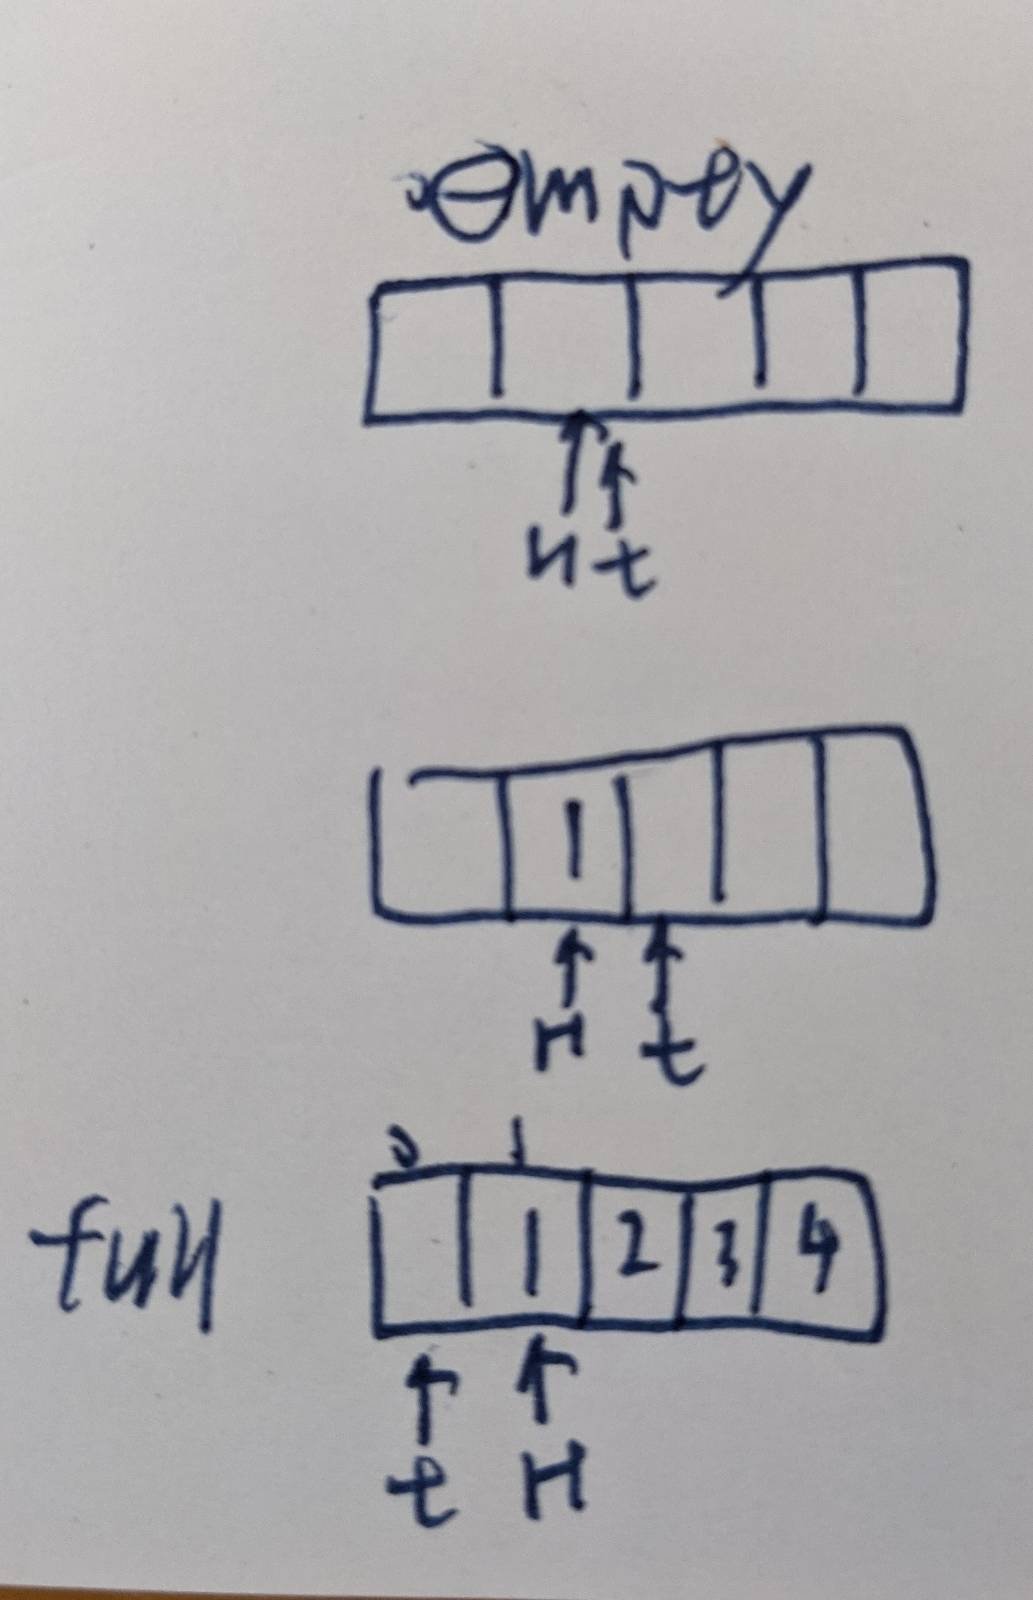 empty
H t
1
H t
0 1
full 1 2 3 4
t H